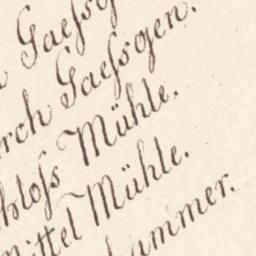 Gaeſsg
rch Gaeſsgen.
hloſs Mühle.
Mittel Mühle.
hammer.